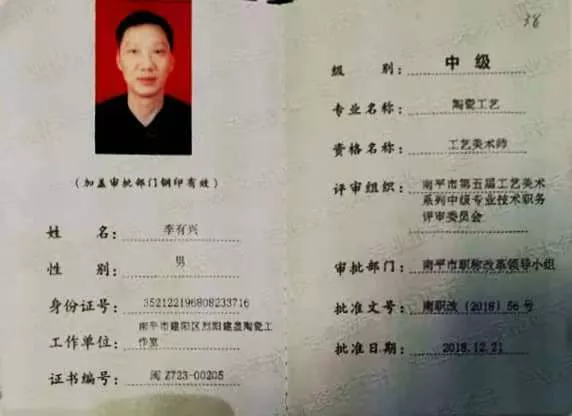 (加盖审批部门钢印有效)
姓 名: 李有兴
性 别: 男
身份证号: 352122196808233716
工作单位: 南平市建阳区烈阳建盏陶瓷工
作室
证书编号: 闽Z723-00205
38
级 别: 中级
专业名称: 陶瓷工艺
资格名称: 工艺美术师
评审组织: 南平市第五届工艺美术
系列中级专业技术职务
评审委员会
审批部门: 南平市职称改革领导小组
批准文号: 南职改(2018)56号
批准日期: 2018.12.21